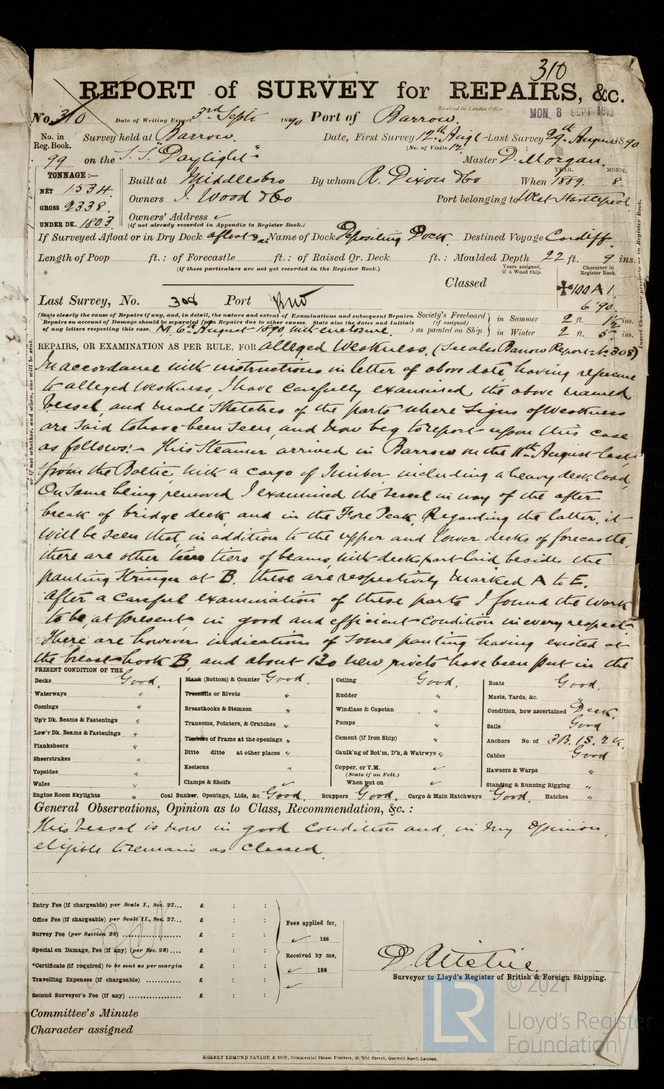 310
REPORT of SURVEY for REPAIRS, &c.
Received in London Office
MON. 8 SEPT 1890
No. 310 Date of Writing Report 3rd Sept 1890 Port of Barrow.
No. in Reg. Book. Survey held at Barrow. Date, First Survey 12th Augt Last Survey 29th August 1890
(No. of Visits 12)
99 on the S.S. "Daylight" Master D. Morgan.
TONNAGE:— YEAR. MONTH.
NET 1534 Built at Middlesbro By whom R. Dixon & Co When 1889. 8.
GROSS 2338. Owners J. Wood & Co Port belonging to West Hartlepool
UNDER DK. 1803. Owners' Address
(if not already recorded in Appendix to Register Book.)
If Surveyed Afloat or in Dry Dock afloat Name of Dock Depositing Dock. Destined Voyage Cardiff.
Length of Poop ft.: of Forecastle ft.: of Raised Qr. Deck ft.: Moulded Depth 22 ft. 9 ins.
(if these particulars are not yet recorded in the Register Book.)
Years assigned, if a Wood ship. Character in Register Book.
Classed ✠100A1.
6.90
Last Survey, No. 308 Port Brw
(State clearly the cause of Repairs if any, and, in detail, the nature and extent of Examinations and subsequent Repairs. Repairs on account of Damage should be separated from Repairs due to other causes. State also the dates and initials of any letters respecting this case. M. 6th August 1890 with enclosure.)
Society's Freeboard (if assigned) as painted on Ship in Summer 2 ft. 1½ ins.
in Winter 2 ft. 5 ins.
REPAIRS, OR EXAMINATION AS PER RULE, FOR alleged Weakness. (See also Barrow Report No. 308)
In accordance with instructions in letter of above date having reference
to alleged weakness, I have carefully examined the above named
Vessel, and made sketches of the parts where signs of weakness
are said to have been seen, and now beg to report upon this case
as follows:— This Steamer arrived in Barrow on the 11th August last
from the Baltic, with a cargo of Timber including a heavy deck load,
On same being removed I examined the vessel in way of the after
break of bridge deck and in the Fore Peak, Regarding the latter, it
will be seen that in addition to the upper and lower decks of forecastle,
there are other tiers of beams, with decks part laid, besides the
panting stringer at B, these are respectively marked A to E.
After a careful examination of these parts I found the work
to be, at present, in good and efficient condition in every respect.
There are however indications of some panting having existed at
the breast hook B, and about 20 new rivets have been put in the
PRESENT CONDITION OF THE
Decks Good.
Waterways "
Comings "
Up'r Dk. Beams & Fastenings "
Low'r Dk. Beams & Fastenings "
Planksheers "
Sheerstrakes "
Topsides "
Wales "
Engine Room Skylights "
Plank (Bottom) & Counter Good.
Treenails or Rivets "
Breasthooks & Stemson "
Transoms, Pointers, & Crutches "
Timbers of Frame at the openings "
Ditto ditto at other places "
Keelsons "
Clamps & Shelfs
Coal Bunker, Openings, Lids, &c Good.
Ceiling Good.
Rudder "
Windlass & Capstan "
Pumps "
Cement (if Iron Ship) "
Caulk'ng of Bot'm, D'k, & Watrwys "
Copper, or Y.M.
(State if on Felt.)
When put on
Scuppers Good. Cargo & Main Hatchways Good.
Boats Good.
Masts, Yards, &c. "
Condition, how ascertained Deck.
Sails Good
Anchors No. of 3B. 1S. 2K.
Cables Good
Hawsers & Warps "
Standing & Running Rigging "
Hatches "
General Observations, Opinion as to Class, Recommendation, &c.:
This vessel is now in good condition and, in my opinion,
eligible to remain as classed.
Entry Fee (if chargeable) per Scale I., Sec. 27... £ : :
Office Fee (if chargeable) per Scale II., Sec. 27... £ : :
Survey Fee (per Section 28) £ : :
Special on Damage, Fee (if any) (per Sec. 28)... £ : :
*Certificate (if required) to be sent as per margin
Travelling Expenses (if chargeable) £ : :
Second Surveyor's Fee (if any) £ : :
Fees applied for,
188
Received by me,
188
D. Ritchie
Surveyor to Lloyd's Register of British & Foreign Shipping.
Committee's Minute
Character assigned
ROBERT EDMUND TAYLOR & SON, Commercial Steam Printers, 19, Old Street, Goswell Road, London.
© 2021
LR
Lloyd's Register
Foundation